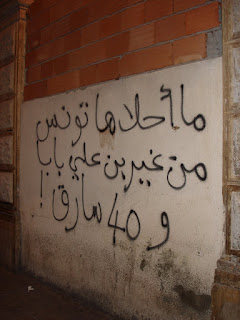 ما أحلاها تونس
من غير بن علي بابا
و 40 سارق !